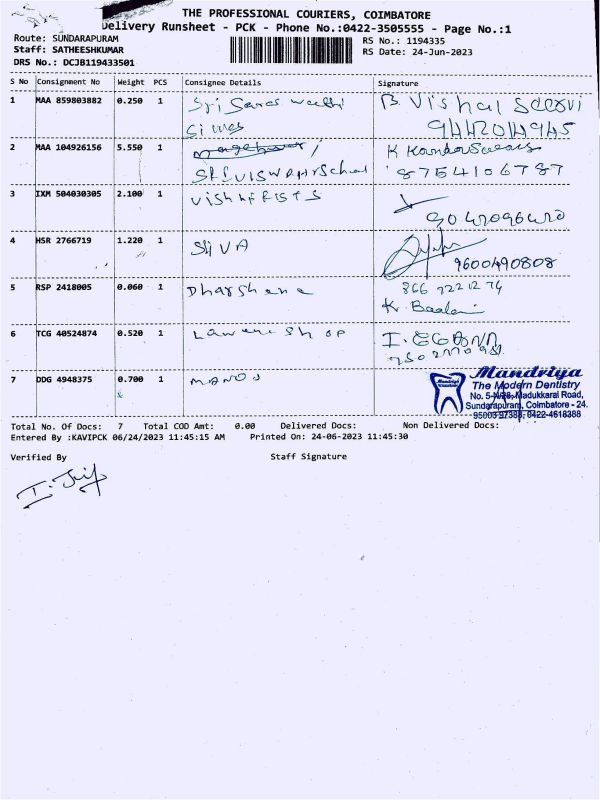 THE PROFESSIONAL COURIERS, COIMBATORE
Delivery Runsheet - PCK - Phone No.:0422-3505555 - Page No.:1
Route: SUNDARAPURAM
RS No.: 1194335
Staff: SATHEESHKUMAR
RS Date: 24-Jun-2023
DRS No.: DCJB119433501
S No Consignment No Weight PCS Consignee Details Signature
1 MAA 859803882 0.250 1 Sri Saraswathi B Vishal
9442014945
2 MAA 104926156 5.550 1
SRI VISWA 8754106787
3 IXM 504030305 2.100 1
9042096420
4 HSR 2766719 1.220 1 SHIVA
9600490808
5 RSP 2418005 0.060 1 Dharshana
K.
6 TCG 40524874 0.520 1
7 DDG 4948375 0.700 1 MANOJ
Mandriya
The Modern Dentistry
Madukkarai Road,
Sundarapuram, Coimbatore - 24.
0422-4618388
Total No. Of Docs: 7 Total COD Amt: 0.00 Delivered Docs: Non Delivered Docs:
Entered By :KAVIPCK 06/24/2023 11:45:15 AM Printed On: 24-06-2023 11:45:30
Verified By Staff Signature